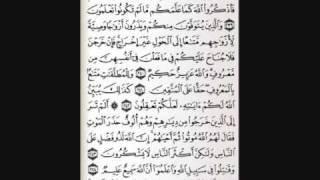 فَاذْكُرُوا اللَّهَ كَمَا عَلَّمَكُم مَّا لَمْ تَكُونُوا تَعْلَمُونَ
﴿٢٣٩﴾ وَالَّذِينَ يُتَوَفَّوْنَ مِنكُمْ وَيَذَرُونَ أَزْوَٰجًا وَصِيَّةً
لِّأَزْوَٰجِهِم مَّتَٰعًا إِلَى الْحَوْلِ غَيْرَ إِخْرَاجٍ فَإِنْ خَرَجْنَ
فَلَا جُنَاحَ عَلَيْكُمْ فِي مَا فَعَلْنَ فِي أَنفُسِهِنَّ مِن
مَّعْرُوفٍ وَاللَّهُ عَزِيزٌ حَكِيمٌ ﴿٢٤٠﴾ وَلِلْمُطَلَّقَٰتِ مَتَٰعٌ
بِالْمَعْرُوفِ حَقًّا عَلَى الْمُتَّقِينَ ﴿٢٤١﴾ كَذَٰلِكَ يُبَيِّنُ
اللَّهُ لَكُمْ ءَايَٰتِهِ لَعَلَّكُمْ تَعْقِلُونَ ﴿٢٤٢﴾ أَلَمْ تَرَ
إِلَى الَّذِينَ خَرَجُوا مِن دِيَٰرِهِمْ وَهُمْ أُلُوفٌ حَذَرَ الْمَوْتِ
فَقَالَ لَهُمُ اللَّهُ مُوتُوا ثُمَّ أَحْيَٰهُمْ إِنَّ اللَّهَ لَذُو فَضْلٍ
عَلَى النَّاسِ وَلَٰكِنَّ أَكْثَرَ النَّاسِ لَا يَشْكُرُونَ ﴿٢٤٣﴾
وَقَٰتِلُوا فِي سَبِيلِ اللَّهِ وَاعْلَمُوا أَنَّ اللَّهَ سَمِيعٌ عَلِيمٌ ﴿٢٤٤﴾